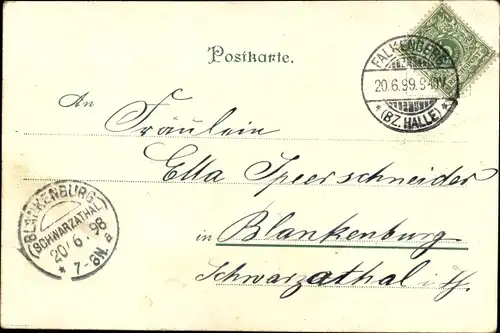 Postkarte.
FALKENBERG
20.6.99. 9-10V
* (BZ. HALLE) *
An Fräulein
Ella Speerschneider
in Blankenburg
Schwarzathal i. Th.
BLANKENBURG
(SCHWARZATHAL)
20/6.98
* 7-8N. a